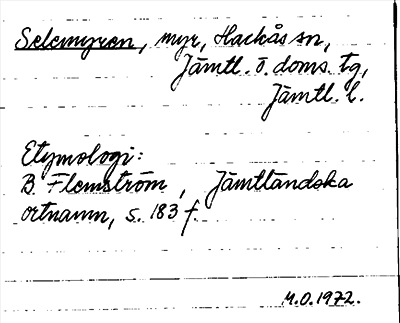 Selemyren, myr, Hackås sn,
Jämtl. ö. doms. tg,
Jämtl. l.
Etymologi:
B Flemström, Jämtländska
ortnamn, s. 183 f.
M.O. 1972.